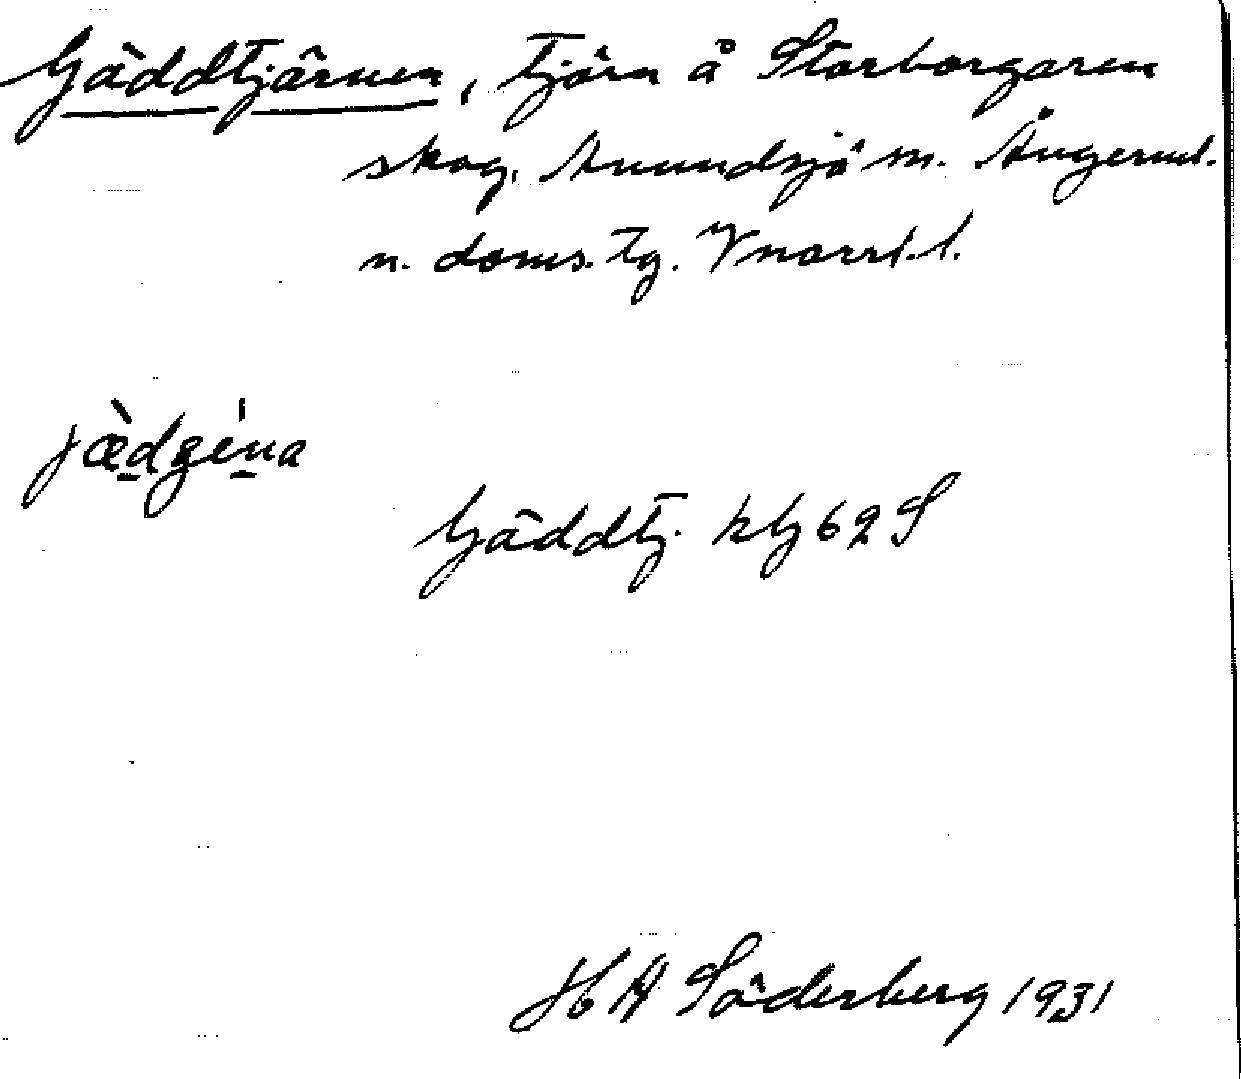 Gäddtjärnen, tjärn å Storborgaren
skog, Anundsjö sn. Ångerml.
n. doms. tg. Vnorrl. l.
jæ̀dgéna
Gäddtj. kbg 62 S
H A Söderberg 1931